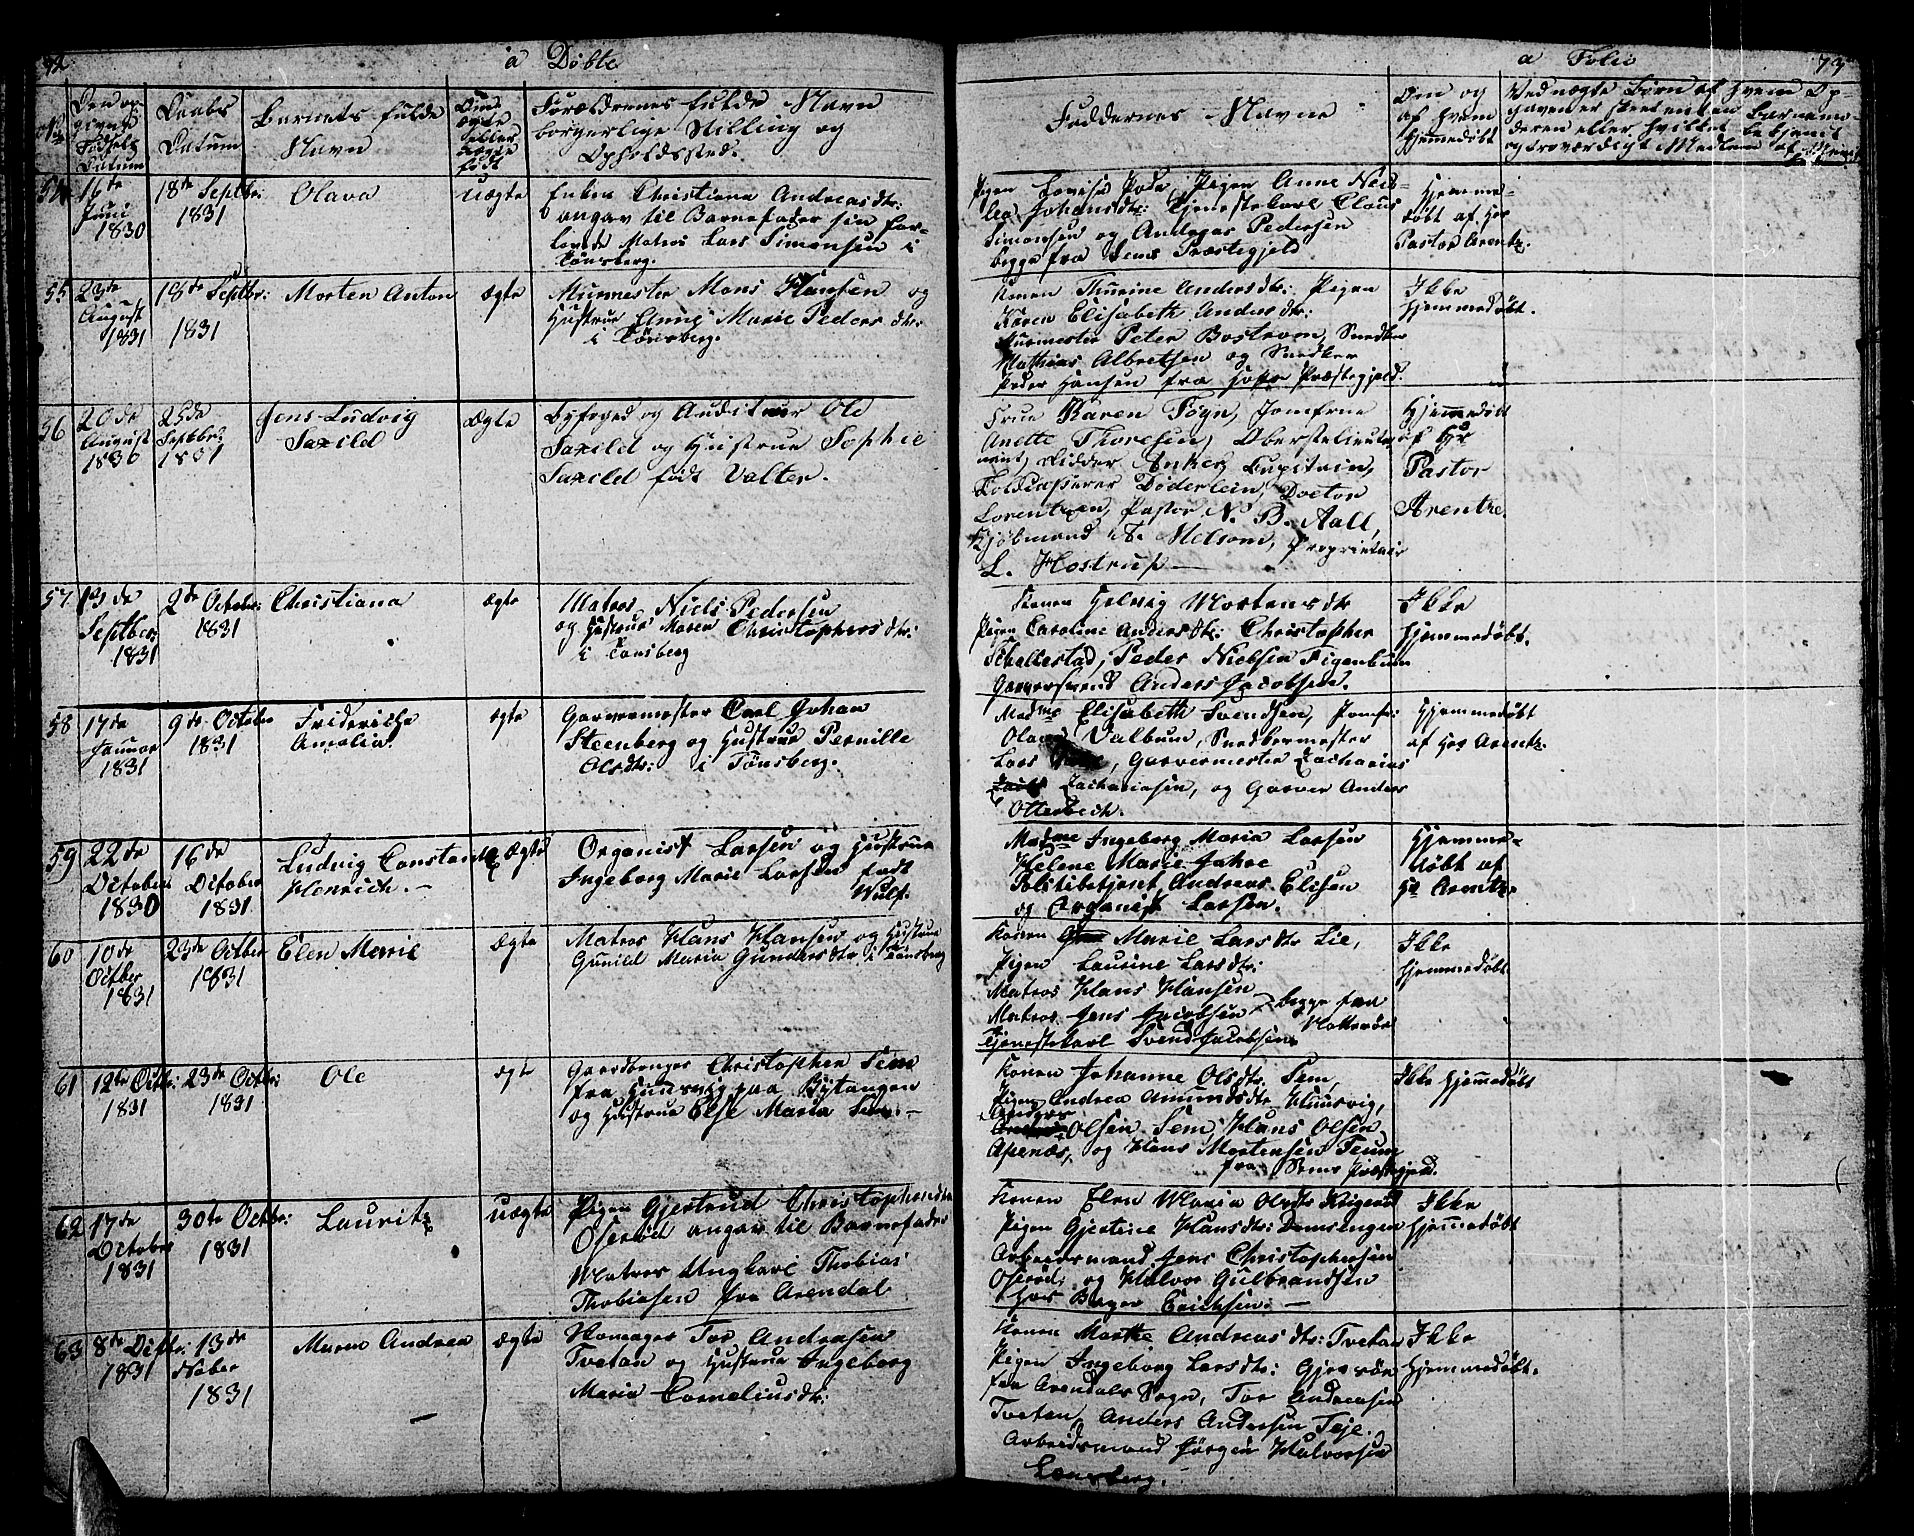 72
a Døbte
a Folio
73
No
Den op-
givne
Fødsels
Datum
Daabs
Datum
Barnets fulde
Navn
Om
ægte
eller
uægte
født
Forældrenes fulde Navn
borgerlige Stilling og
Opholdssted.
Faddernes Navne
Om og
af hvem
hjemmedøbt
Ved uægte Børn af hvem Op-
gaven er skeet enten Barnemo-
deren eller hvilket bekjendt
og troværdigt Medlem af
54
16de
Juni
1830
18de Septbr:
1831
Olava
uægte
Enken Christiana Andreasdtr:
angav til Barnefader sin for-
lovede Matros Lars Simonsen i
Tønsberg.
Pigen Lovise Pigen Anne
Johansdtr: Tjenestekarl Claus
Simonsen og Andreas Pedersen
begge fra Sems Præstegjeld
Hjemme-
døbt af Hr
Pastor Arentz.
55
23de
August
1831
18de Septbr:
1831
Morten Anton
ægte
Muurmester Mons Hansen og
Hustrue Anne Marie Peders dtr:
i Tønsberg.
Konen Thurine Andersdtr: Pigen
Karen Elisabeth Anders dtr:
Muurmester Peter Bostrom, Snedker
Mathias Albretsen og Snedker
Peder Hansen fra Præstegjeld.
Ikke
hjemmedøbt.
56
20de
August
1830
25de
Septbr:
1831
Jens Ludvig
Saxild
Ægte
Byfoged og Auditeur Ole
Saxild og Hustrue Sophie
Saxild født Valter.
Frue Karen Fogn, Jomfrue
Anette Thoresen, Oberstlieute-
nant, Ridder Anker, Capitain,
Toldcasserer Døderlein, Doctor
Lorentzen, Pastor N. B. Aall,
Kjøbmand F. Melsom, Proprietair
L. Hostrup —
Hjemmedøbt
af Hr
Pastor
Arentz.
57
13de
Septber
1831
2de October:
1831
Christiana
ægte
Matros Niels Pedersen
og Hustrue Maren Christophersdtr:
i Tønsberg
Konen Helvig Mortensdtr
Pigen Caroline Andersdtr: Christopher
Schallestad, Peder Nielsen Figenbaum
Garversvend Anders Jacobsen.
Ikke
hjemmedøbt.
58
17de
Januar
1831
9de October
1831
Friderikke
Amalia
ægte
Garvermester Carl Johan
Steenberg og Hustrue Pernille
Olsdtr: i Tønsberg.
Madme Elisabeth Svendsen, Jomfr:
Olava Valbum, Snedkermester
Lars , Garvermester Zacharias
Zachariasen, og Garver Anders
Otterbech.
Hjemmedøbt
af Hr Arentz.
59
22de
October
1830
16de
October
1831
Ludvig Constantin
Henrich. —
ægte
Organist Larsen og Hustrue
Ingeborg Marie Larsen født
Wulf.
Madme Ingeborg Maria Larsen
Helene Marie Jahre
Toldbetjent Andreas Elisen
og Organist Larsen.
Hjemme-
døbt af
Hr Arentz.
60
10de
Octber
1831
23de Octber
1831
Elen Marie
Ægte
Matros Hans Hansen og Hustrue
Gunild Maria Gundersdtr i Tønsberg
Konen Marie Larsdtr Lie,
Pigen Laurine Larsdtr:
Matros Hans Hansen
Matros Jens Jacobsen begge fra
Nøtterøe
Tjenestekarl Svend Jacobsen
Ikke
hjemmedøbt
61
12te Octbr:
1831
23de Octbr:
1831
Ole
ægte
Gaardbruger Christopher Sem
fra Huusvig paa Bytangen
og Hustrue Else Maria Sem. —
Konen Johanne Olsdtr: Sem,
Pigen Andrea Amundsdtr Huusvig,
Anders
Olsen Sem, Hans Olsen
Apenæs, og Hans Mortensen Teum
fra Sems Præstegjeld.
Ikke hjemmedøbt
62
17de
October
1831
30te Octbr:
1831
Lauritz
uægte
Pigen Gjertrud Christophersdtr
Oserød angav til Barnefader
Matros Ungkarl Thobias
Thobiasen fra Arendal
Konen Elen Maria Olsdtr
Pigen Gjertine Hansdtr:
Arbeidsmand Jens Christophersen
Oserød, og Halvor Gulbrandsen
hos Bager Erichsen. —
Ikke
hjemmedøbt
63
8de Octbr:
1831
13de
Nober
1831
Maren Andrea
ægte
Skomager Tor Andreasen
Tvetan og Hustrue Ingeborg
Maria Corneliusdtr:
Konen Marthe Andreasdtr: Tvetan
Pigen Ingeborg Larsdtr:
fra Arendals Sogn, Tor Andreasen
Tvetan, Anders Andersen Teje.
Arbeidsmand Jørgen Halvorsen
Tønsberg.
Ikke
hjemmedøbt.